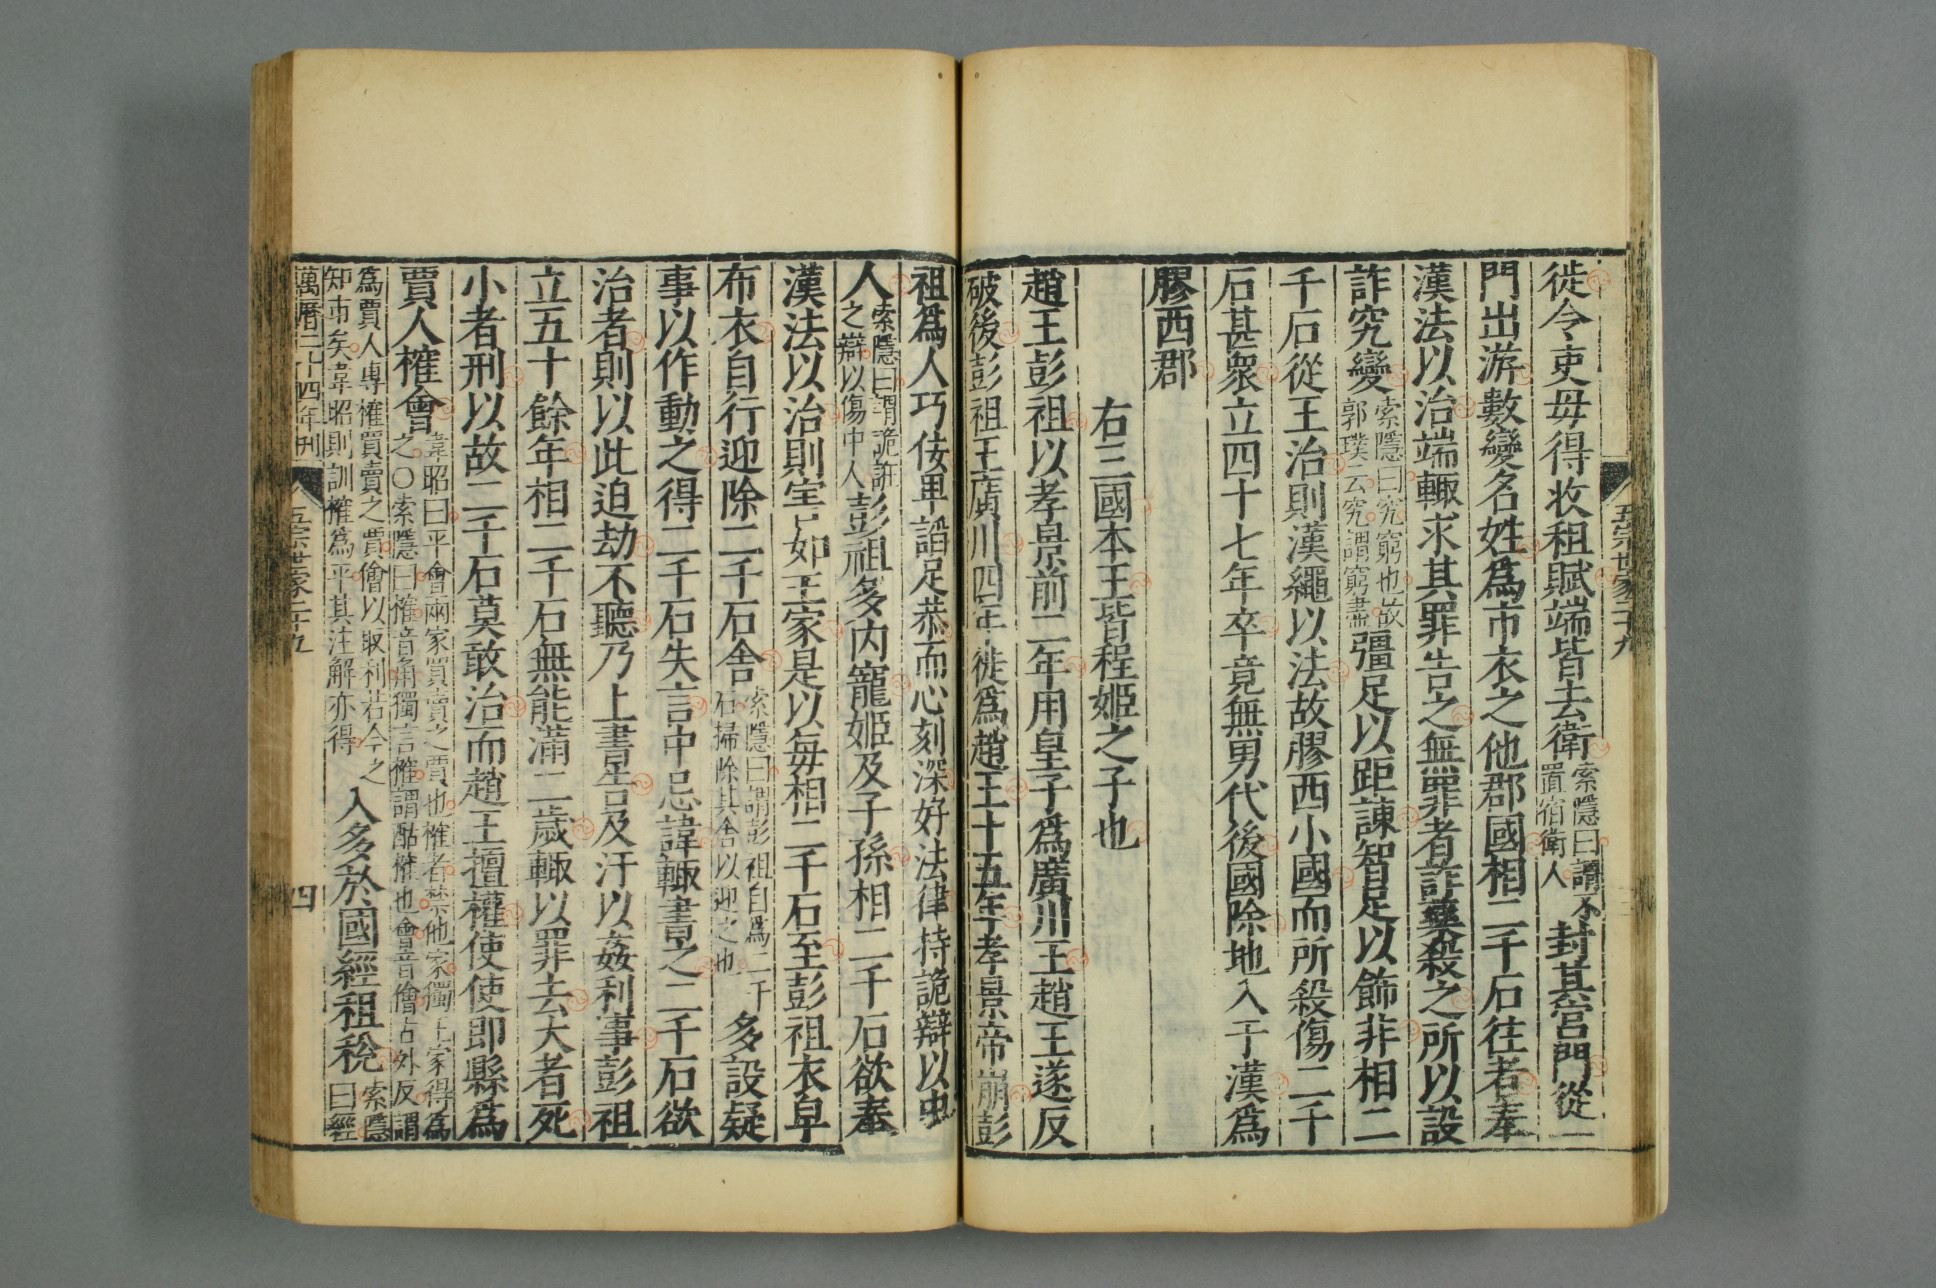 五宗世家二十九
徙令吏毋得收租賦端皆去衛索隱曰謂不置宿衛人封其宮門從一
門出游數變名姓爲布衣之他郡國相二千石往者奉
漢法以治端輙求其罪告之無罪者詐藥殺之所以設
詐究變索隱曰究窮也故郭璞云究謂窮盡彊足以距諫智足以飾非相二
千石從王治則漢繩以法故膠西小國而所殺傷二千
石甚衆立四十七年卒竟無男代後國除地入于漢爲
膠西郡
右三國本王皆程姬之子也
趙王彭祖以孝景前二年用皇子爲廣川王趙王遂反
破後彭祖王廣川四年徙爲趙王十五年孝景帝崩彭
祖爲人巧佞卑諂足恭而心刻深好法律持詭辯以中
人索隱曰謂詭誑之辯以傷中人彭祖多内寵姬及子孫相二千石欲奉
漢法以治則害於王家是以每相二千石至彭祖衣皁
布衣自行迎除二千石舍索隱曰謂彭祖自爲二千石掃除其舍以迎之也多設疑
事以作動之得二千石失言中忌諱輙書之二千石欲
治者則以此迫劫不聽乃上書告及汙以姦利事彭祖
立五十餘年相二千石無能滿二歲輙以罪去大者死
小者刑以故二千石莫敢治而趙王擅權使使即縣爲
賈人榷會韋昭曰平會兩家買賣之賈也榷者禁他家獨王家得爲之〇索隱曰榷音角獨言榷謂酤榷也會音儈古外反謂
爲賈人專榷買賣之賈儈以取利若今之知市矣韋昭則訓榷爲平其注解亦得入多於國經租稅索隱曰經
萬曆二十四年刊
五宗世家二十九
四